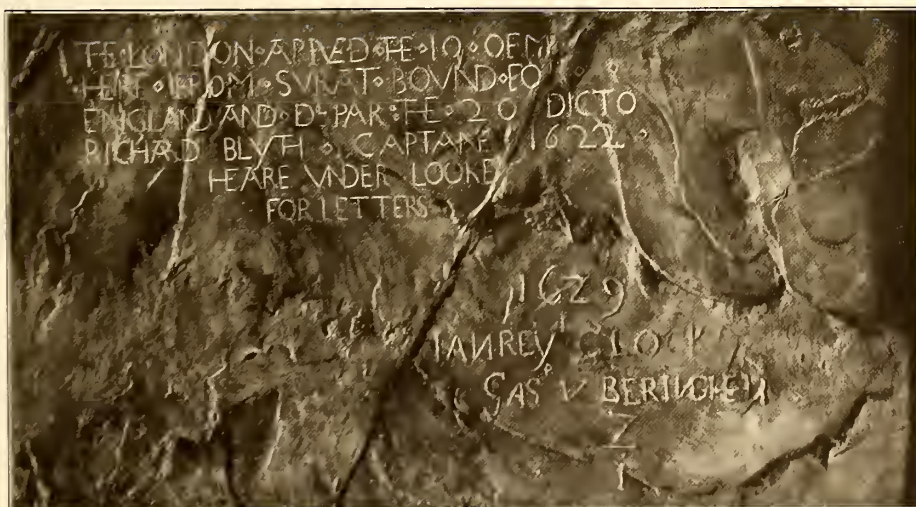 THE·LONDON·ARIVED·THE·10·OF·M
HERE·FROM·SVRAT·BOVND·FO
ENGLAND AND·DEPAR·THE·20 DICTO
RICHARD BLYTH · CAPTANE 1622
HEARE VNDER LOOKE
FOR LETTERS
1629
IAN REY
GAS V BERINGHEM
1